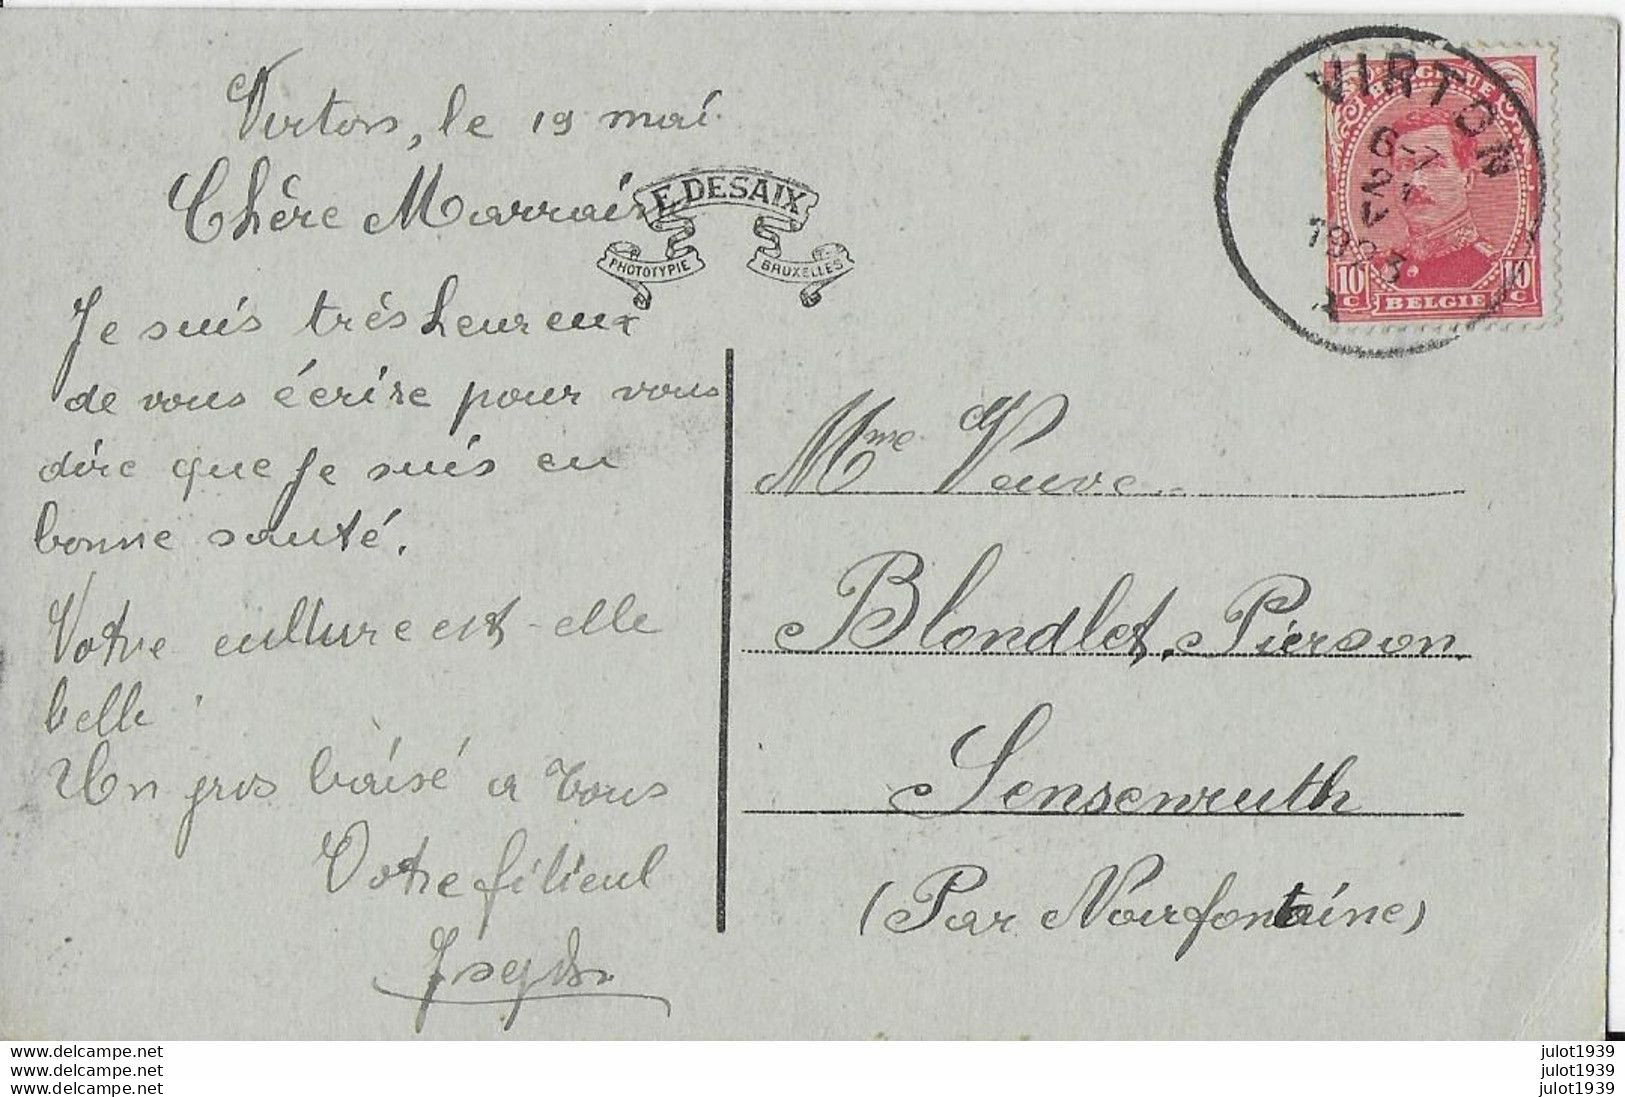 Virton, le 19 mai
Chère Marraine
E. DESAIX
PHOTOTYPIE BRUXELLES
Je suis très heureux
de vous écrire pour vous
dire que je suis en
bonne santé.
Votre culture est-elle
belle
Un gros baisé a tous
Votre filieul
Joseph
VIRTON
6-7
21
1923
BELGIQUE
10 C BELGIE 10 C
Mme Veuve
Blondlet, Pierson
Sensenruth
(Par Noirfontaine)
www.delcampe.net
www.delcampe.net
www.delcampe.net
julot1939
julot1939
julot1939